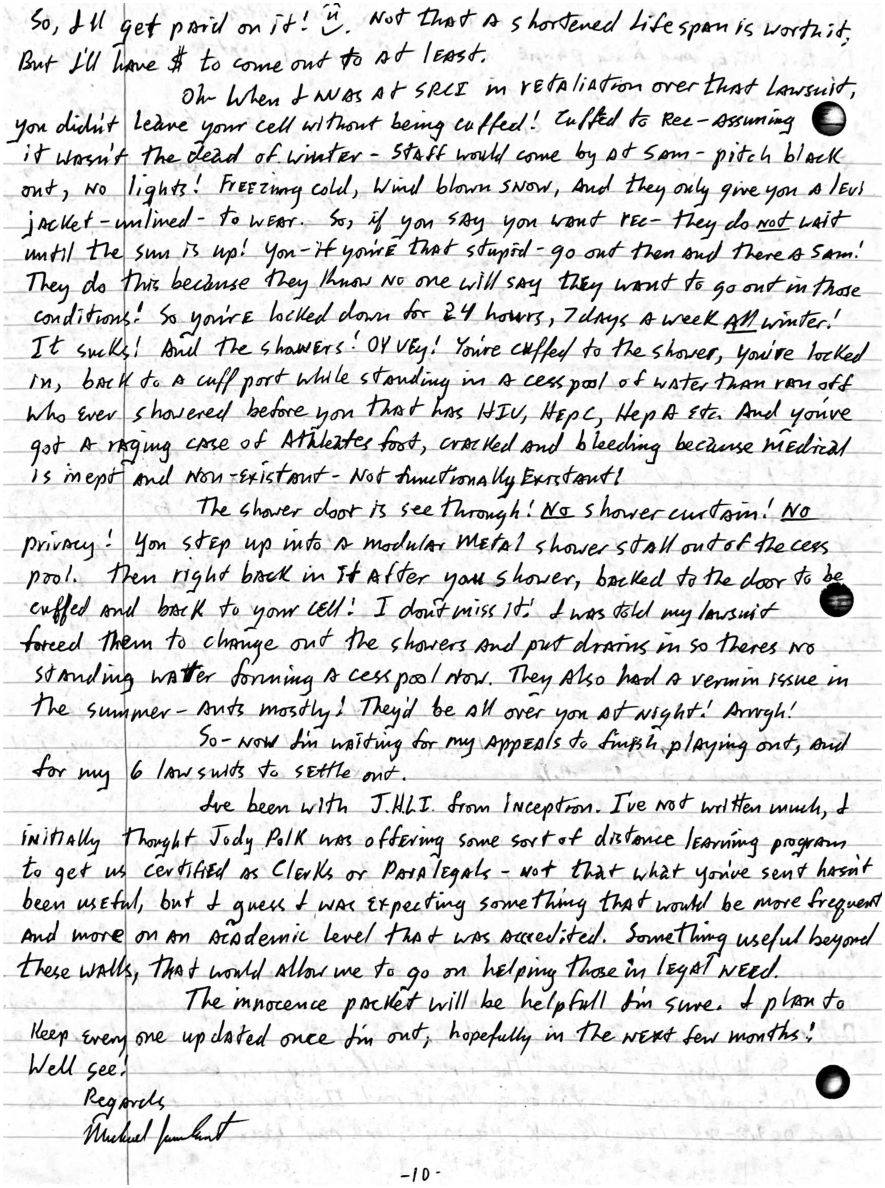 So, I'll get paid on it! Not that a shortened lifespan is worth it,
But I'll have $ to come out to at least.
Oh- When I was at SRCI in retaliation over that lawsuit,
you didn't leave your cell without being cuffed! Cuffed to Rec - Assuming
it wasn't the dead of winter - Staff would come by at 5am - pitch black
out, no lights! Freezing cold, wind blown snow, and they only give you a levi
jacket - unlined - to wear. So, if you say you want rec - they do not wait
until the sun is up! You - if you're that stupid - go out then and there a 5am!
They do this because they know no one will say they want to go out in those
conditions! So you're locked down for 24 hours, 7 days a week All winter!
It sucks! And the showers! OY VEY! You're cuffed to the shower, you're locked
in, back to a cuff port while standing in a cesspool of water than ran off
who ever showered before you that has HIV, HepC, Hep A etc. And you've
got a raging case of Athleates foot, cracked and bleeding because medical
is inept and non-existant - Not functionally Existant!
The shower door is see through! No shower curtain! No
privacy! You step up into a modular metal shower stall out of the cess
pool. Then right back in it after you shower, backed to the door to be
cuffed and back to your cell! I don't miss it! I was told my lawsuit
forced them to change out the showers and put drains in so theres no
standing water forming a cesspool now. They also had a vermin issue in
the summer - ants mostly! They'd be all over you at night! Arrrgh!
So - now I'm waiting for my appeals to finish playing out, and
for my 6 lawsuits to settle out.
I've been with J.H.L.I. from inception. I've not written much, I
initially thought Jody Polk was offering some sort of distance learning program
to get us certified as Clerks or Paralegals - not that what you've sent hasn't
been useful, but I guess I was expecting something that would be more frequent
and more on an academic level that was accredited. Something useful beyond
these walls, that would allow me to go on helping those in legal need.
The innocence packet will be helpfull I'm sure. I plan to
keep every one updated once I'm out, hopefully in the next few months!
Well see!
Regards
Michael
-10-